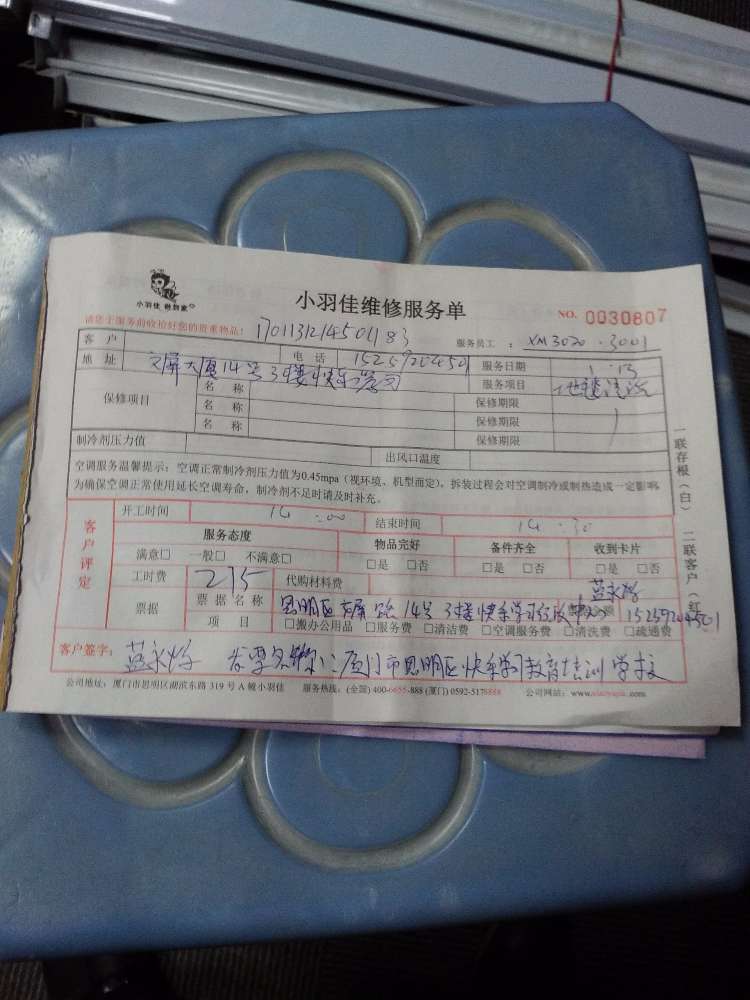 小羽佳维修服务单
小羽佳 碰到家
NO. 0030807
请您于服务前收拾好您的贵重物品： 服务员工： XM3020 . 3001
客 户 电 话 15259204501 服务日期 1 . 13
地 址 文屏大厦14号3楼快乐学习 服务项目 地毯清洗
保修项目 名 称 保修期限
名 称 保修期限
名 称 保修期限
制冷剂压力值 出风口温度
空调服务温馨提示：空调正常制冷剂压力值为0.45mpa（视环境、机型而定），拆装过程会对空调制冷或制热造成一定影响
为确保空调正常使用延长空调寿命，制冷剂不足时请及时补充。
一联存根（白） 二联客户（红）
开工时间 14 :00 结束时间 14 :30
客户评定
服务态度 物品完好 备件齐全 收到卡片
满意□ 一般□ 不满意□ □是 □否 □是 □否 □是 □否
工时费 215 代购材料费
票据 票据名称 思明区文屏路14号3楼快乐学习 15259204501
项 目 □搬办公用品 □服务费 □清洁费 □空调服务费 □清洗费 □疏通费
客户签字： 厦门市思明区快乐学习教育培训学校
公司地址：厦门市思明区湖滨东路 319 号 A 幢小羽佳 服务热线：(全国) 400-6655-888 (厦门) 0592-5176888 公司网站：www.xiaoyujia.com